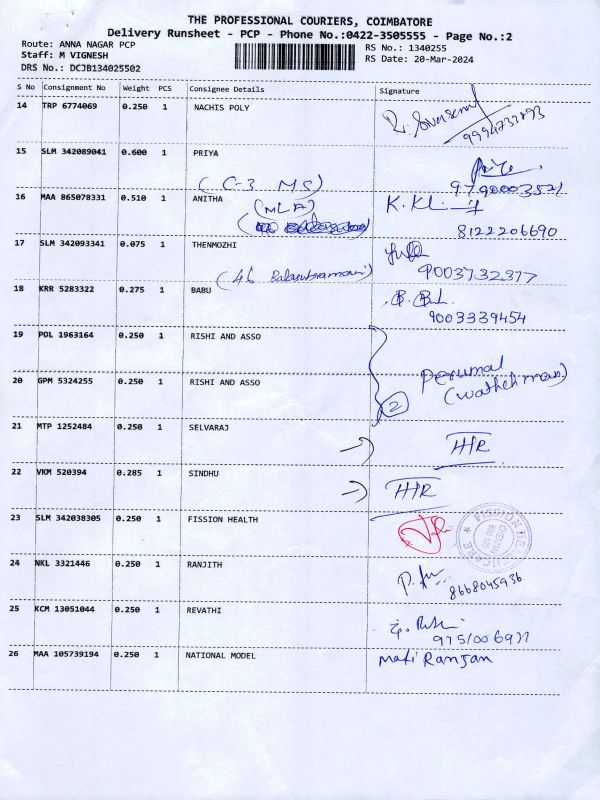 THE PROFESSIONAL COURIERS, COIMBATORE
Delivery Runsheet - PCP - Phone No.:0422-3505555 - Page No.:2
Route: ANNA NAGAR PCP
Staff: M VIGNESH
DRS No.: DCJB134025502
RS No.: 1340255
RS Date: 20-Mar-2024
S No Consignment No Weight PCS Consignee Details Signature
14 TRP 6774069 0.250 1 NACHIS POLY
15 SLM 342089041 0.600 1 PRIYA
(C-3 MS)
16 MAA 865078331 0.510 1 ANITHA
(MLA)
8122206690
17 SLM 342093341 0.075 1 THENMOZHI
9003732377
18 KRR 5283322 0.275 1 BABU (46
9003339454
19 POL 1963164 0.250 1 RISHI AND ASSO
20 GPM 5324255 0.250 1 RISHI AND ASSO
2 Perumal
21 MTP 1252484 0.250 1 SELVARAJ
H/R
22 VKM 520394 0.285 1 SINDHU
H/R
23 SLM 342038305 0.250 1 FISSION HEALTH
24 NKL 3321446 0.250 1 RANJITH
8668045936
25 KCM 13051044 0.250 1 REVATHI
26 MAA 105739194 0.250 1 NATIONAL MODEL Mati Ranjan